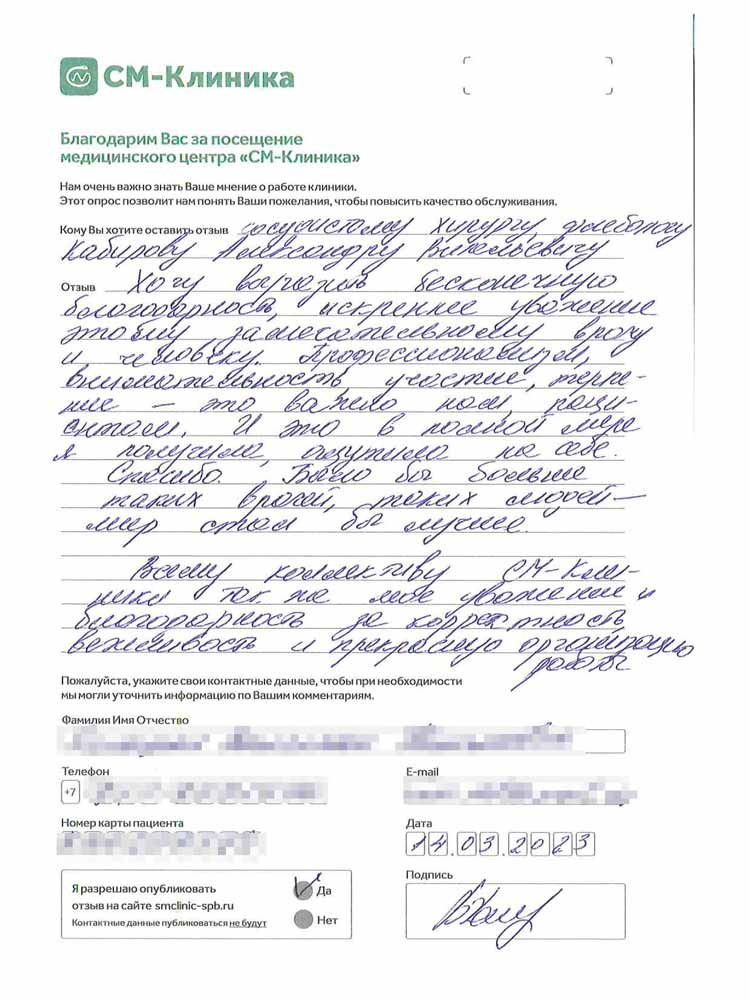 СМ-Клиника
Благодарим Вас за посещение
медицинского центра «СМ-Клиника»
Нам очень важно знать Ваше мнение о работе клиники.
Этот опрос позволит нам понять Ваши пожелания, чтобы повысить качество обслуживания.
Кому Вы хотите оставить отзыв сосудистому хирургу, флебологу
Кабирову Александру Витальевичу
Отзыв Хочу выразить бесконечную
благодарность, искреннее уважение
этому замечательному врачу
и человеку. Профессионализм,
внимательность, участие, терпе-
ние – это важно нам, паци-
ентам. И это в полной мере
я получила, ощутила на себе.
Спасибо. Было бы больше
таких врачей, таких людей –
мир стал бы лучше.
Всему коллективу СМ-Кли-
ники так же мое уважение и
благодарность за корректность
вежливость и прекрасную организацию
работы
Пожалуйста, укажите свои контактные данные, чтобы при необходимости
мы могли уточнить информацию по Вашим комментариям.
Фамилия Имя Отчество
Телефон E-mail
+7
Номер карты пациента Дата
14.03.2023
Я разрешаю опубликовать
отзыв на сайте smclinic-spb.ru
Контактные данные публиковаться не будут
Да
Нет
Подпись